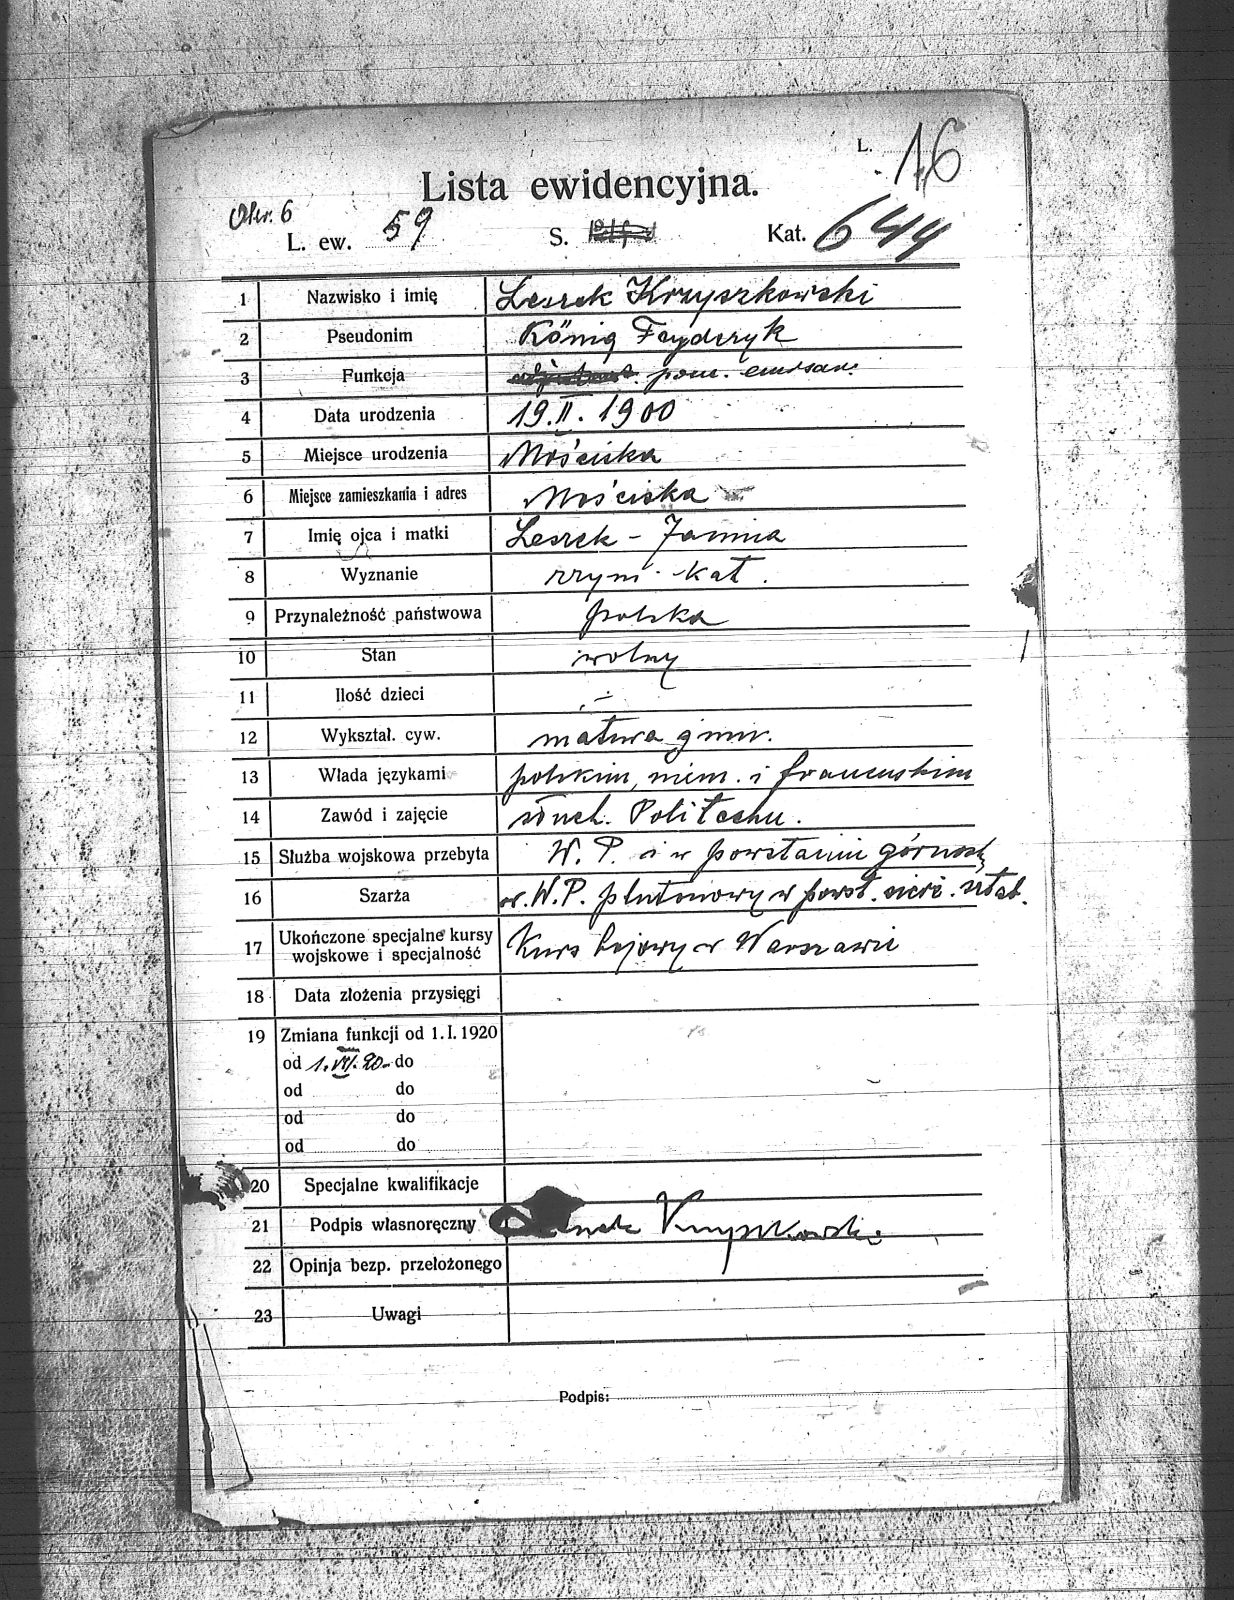 L. 16
Lista ewidencyjna.
Okr. 6
L. ew. 59 S. Kat. 644
1 Nazwisko i imię Leszek Krzyszkowski
2 Pseudonim König Fryderyk
3 Funkcja pom. emisar.
4 Data urodzenia 19.II.1900
5 Miejsce urodzenia Mościska
6 Miejsce zamieszkania i adres Mościska
7 Imię ojca i matki Leszek - Janina
8 Wyznanie rzym. kat.
9 Przynależność państwowa polska
10 Stan wolny
11 Ilość dzieci -
12 Wykształ. cyw. matura gimn.
13 Włada językami polskim, niem. i francuskim
14 Zawód i zajęcie słuch. Politechn.
15 Służba wojskowa przebyta W. P. i w powstaniu górnośl.
16 Szarża w. W.P. plutonowy w powst. sierż. sztab.
17 Ukończone specjalne kursy Kurs bojowy w Warszawie
wojskowe i specjalność
18 Data złożenia przysięgi
19 Zmiana funkcji od 1. I. 1920
od 1. VII. 20. do
od do
od do
od do
20 Specjalne kwalifikacje
21 Podpis własnoręczny Krzyszkowski
22 Opinja bezp. przełożonego
23 Uwagi
Podpis: